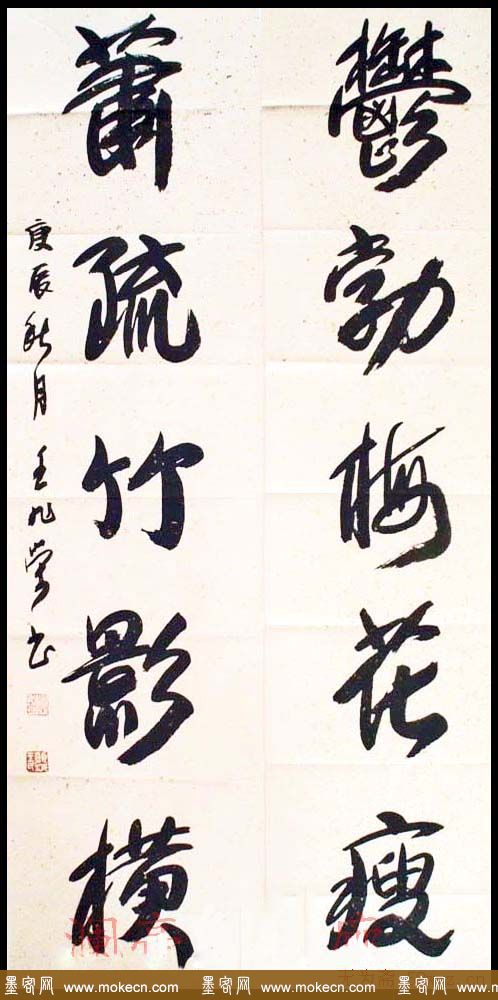 鬱勃梅花瘦
蕭疏竹影橫
庚辰秋月王旭堂书
墨客网 www.mokecn.com 墨客网 www.mokecn.com 墨客网 www.mokecn.com